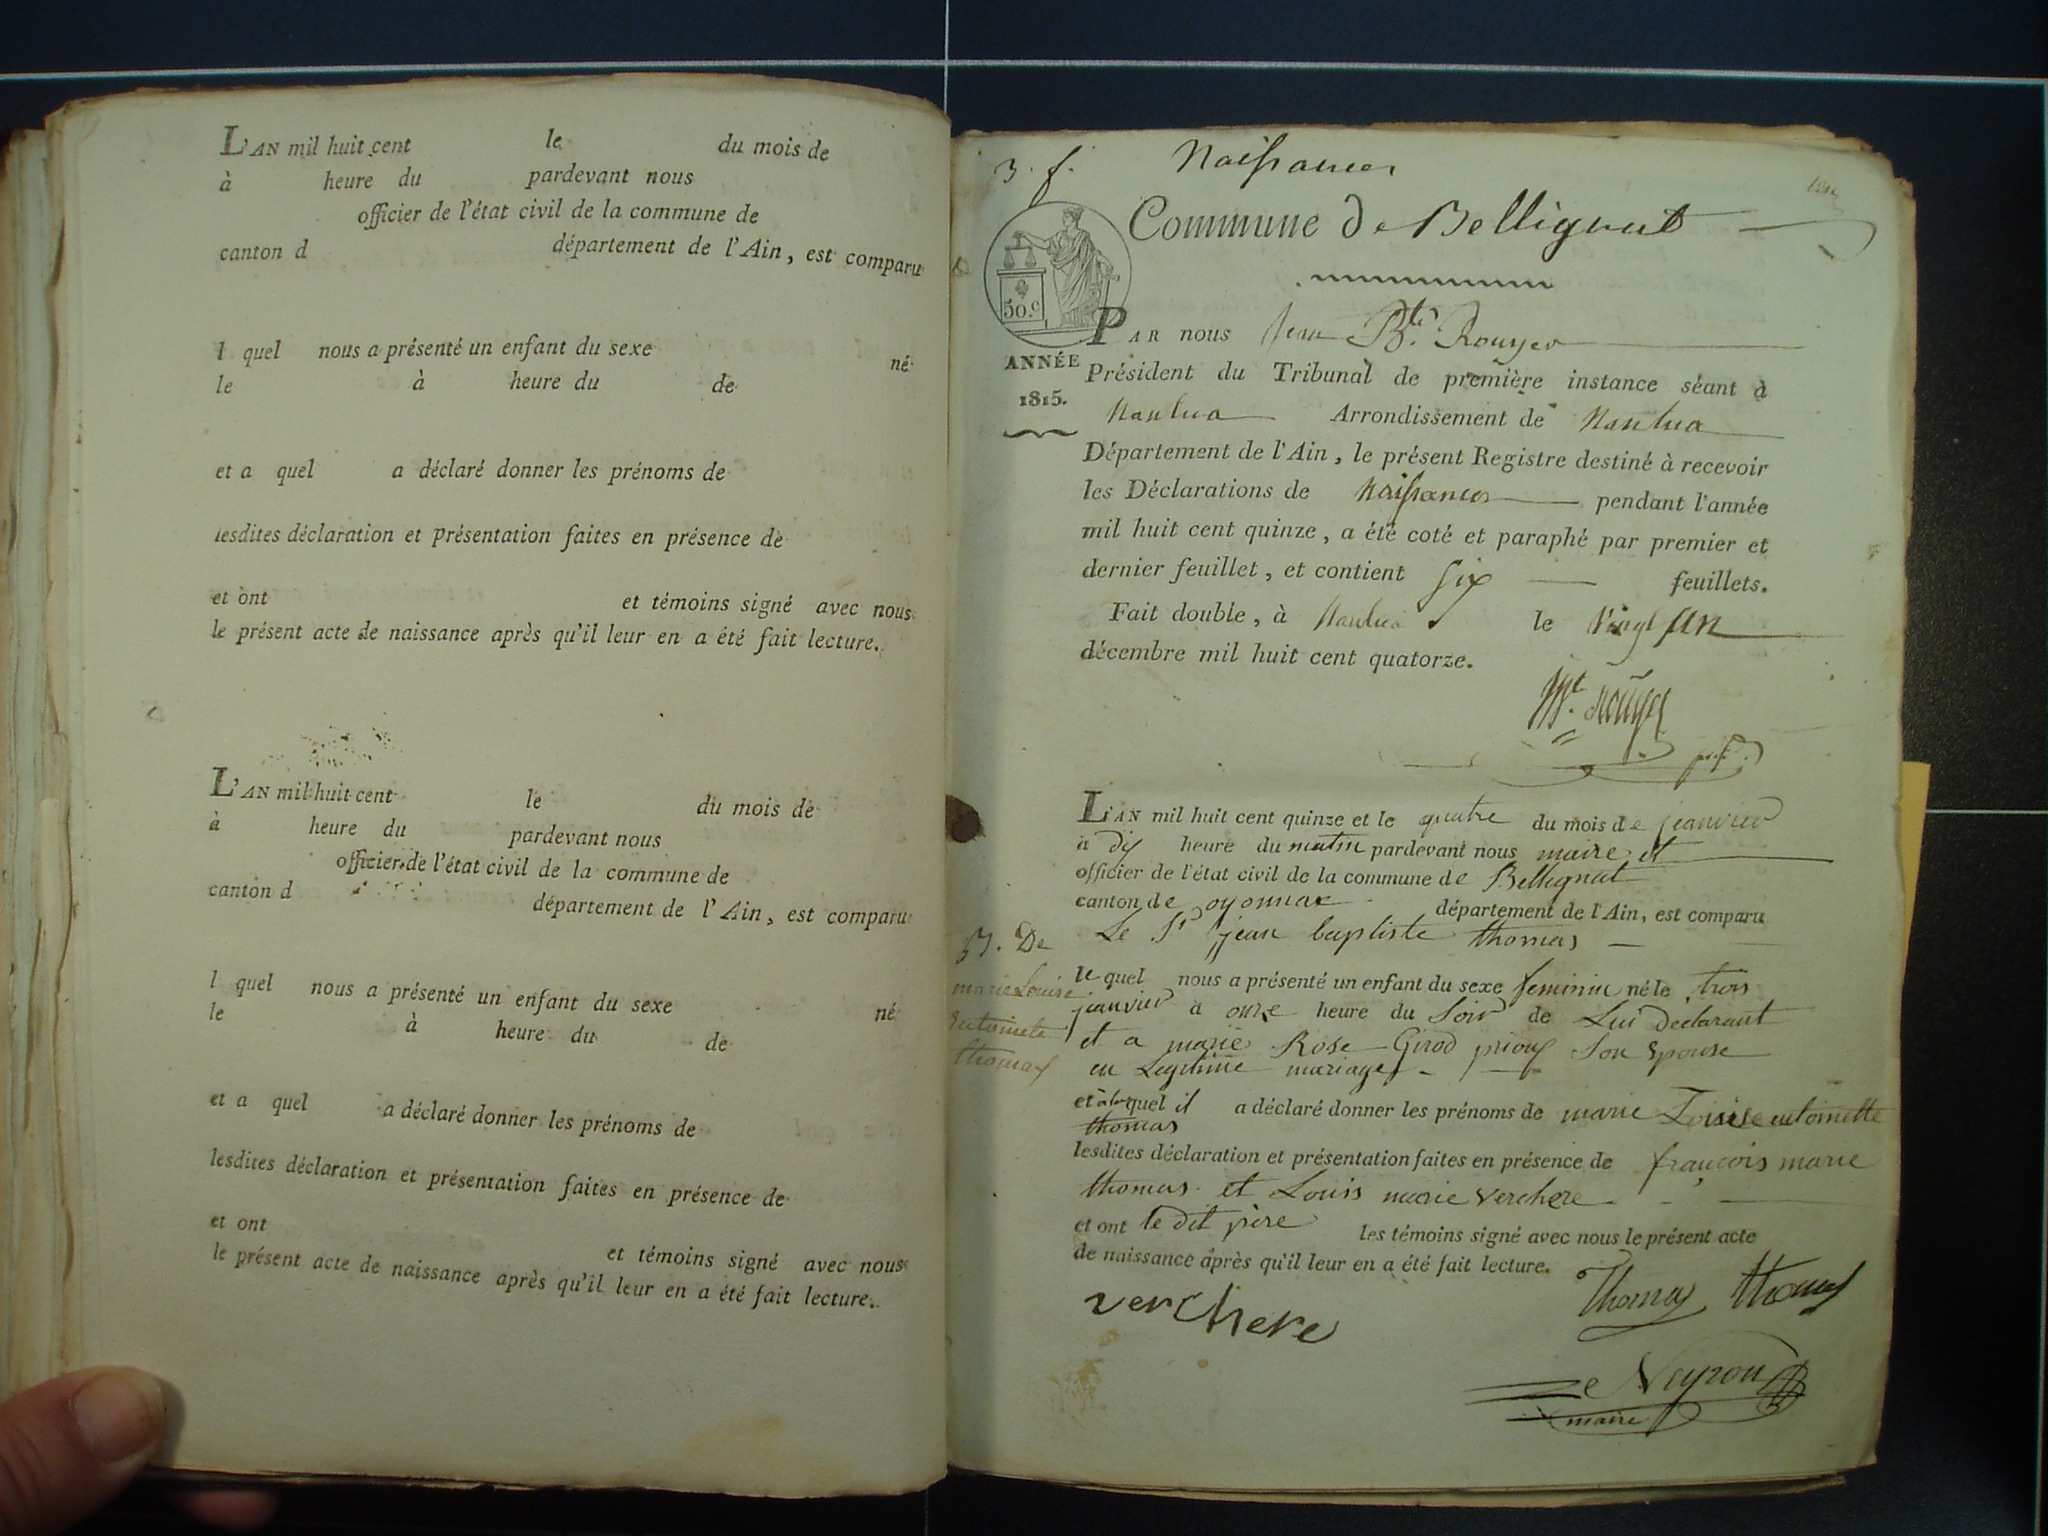 L'AN mil huit cent le du mois de
à heure du pardevant nous
officier de l'état civil de la commune de
canton d département de l'Ain, est comparu
l quel nous a présenté un enfant du sexe né
le à heure du de
et a quel a déclaré donner les prénoms de
lesdites déclaration et présentation faites en présence de
et ont et témoins signé avec nous
le présent acte de naissance après qu'il leur en a été fait lecture.
L'AN mil huit cent le du mois de
à heure du pardevant nous
officier de l'état civil de la commune de
canton d département de l'Ain, est comparu
l quel nous a présenté un enfant du sexe né
le à heure du de
et a quel a déclaré donner les prénoms de
lesdites déclaration et présentation faites en présence de
et ont et témoins signé avec nous
le présent acte de naissance après qu'il leur en a été fait lecture.
3. f. Naissances
Commune de Bellignat
50.c
PAR nous Jean Bte. Rouyer
ANNÉE
1815.
Président du Tribunal de première instance séant à
Nantua Arrondissement de Nantua
Département de l'Ain, le présent Registre destiné à recevoir
les Déclarations de Naissances pendant l'année
mil huit cent quinze, a été coté et paraphé par premier et
dernier feuillet, et contient Six feuillets.
Fait double, à Nantua le Vingt un
décembre mil huit cent quatorze.
Rouyer
L'AN mil huit cent quinze et le quatre du mois de jeanvier
à dix heure du matin pardevant nous maire et
officier de l'état civil de la commune de Bellignat
canton de oyonnax département de l'Ain, est comparu
Le Sr jean baptiste thomas
N. De
marie Louise
antoinete
thomas
le quel nous a présenté un enfant du sexe feminin né le trois
janvier à onze heure du Soir de Lui declarant
et a marie Rose Girod son Epouse
en Legitime mariage
et a la quel il a déclaré donner les prénoms de marie Louise antoinette
thomas
lesdites déclaration et présentation faites en présence de françois marie
thomas et Louis marie verchere
et ont le dit père les témoins signé avec nous le présent acte
de naissance après qu'il leur en a été fait lecture.
Thomas thomas
verchere
Neyron
maire